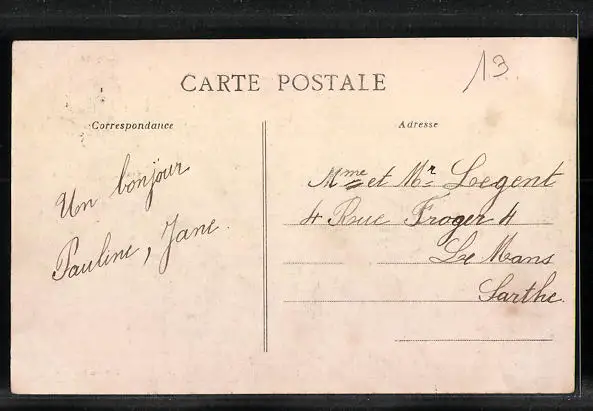 13
CARTE POSTALE
Correspondance
Un bonjour
Pauline, Jane.
Adresse
Mme et Mr Legent
4 Rue Froger 4
Le Mans
Sarthe.